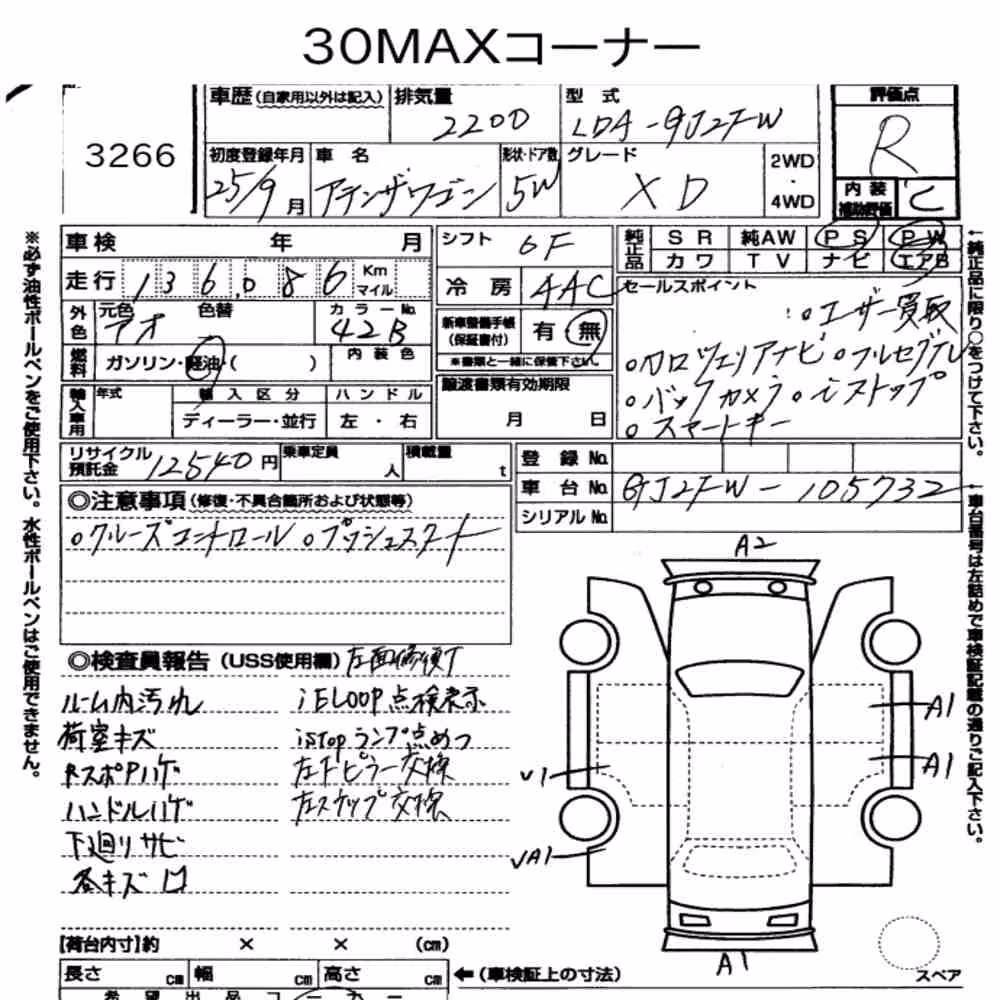 30MAXコーナー
車歴 (自家用以外は記入) 排気量 型式 評価点
3266 2200 LDA-GJ2FW R
初度登録年月 車名 形状・ドア数 グレード 2WD・4WD 内装補助評価 C
25/9月 アテンザワゴン 5W XD
車検 年 月 シフト 6F 純正品 SR 純AW PS PW
カワ TV ナビ エアB
走行 136,086 Km マイル 冷房 AAC セールスポイント
外色 元色 色替 カラーNo.
アオ 42B 新車整備手帳(保証書付) 有 無
。ユーザー買取
燃料 ガソリン・軽油・( ) 内装色 ※書類と一緒に保管下さい。
。カロッツェリアナビ 。フルセグTV
輸入車用 年式 輸入区分 ハンドル 譲渡書類有効期限
。バックカメラ 。iストップ
ディーラー・並行 左・右 月 日
。スマートキー
リサイクル預託金 12540円 乗車定員 人 積載量 t 登録No.
車台No. GJ2FW-105732
シリアルNo.
◎注意事項 (修復・不具合箇所および状態等)
。クルーズコントロール 。プッシュスタート
◎検査員報告 (USS使用欄) 左面修復了
ルーム内汚れ i ELOOP点検表示
荷室キズ istopランプ点めつ
RスポPハゲ 左Fピラー交換
ハンドルハゲ 左ステップ交換
下廻りサビ
各キズ凹
A2
A1
A1
V1
VA1
A1
スペア
【荷台内寸】約 × × (cm)
長さ cm 幅 cm 高さ cm ←(車検証上の寸法)
希望出品コーナー
※必ず油性ボールペンをご使用下さい。水性ボールペンはご使用できません。
←純正品に限り○をつけて下さい。
←車台番号は左詰めで車検証記載の通りご記入下さい。